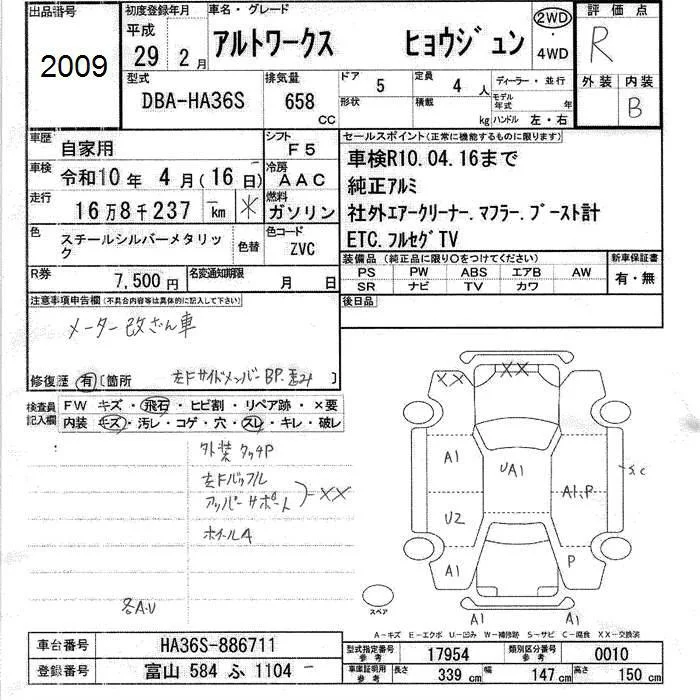 出品番号
2009
初度登録年月
平成
29 2月
車名・グレード
アルトワークス ヒョウジュン
2WD
・
4WD
評価点
R
外装 内装
B
型式
DBA-HA36S
排気量
658
CC
ドア
5
形状
定員
4 人
積載
kg
ディーラー・並行
モデル年式 年
ハンドル 左・右
車歴
自家用
シフト
F5
車検
令和10年 4月(16日)
冷房
AAC
走行
16万8千237 km ※
燃料
ガソリン
色
スチールシルバーメタリック
色替
色コード
ZVC
R券
7,500円
名変通知期限
月 日
セールスポイント(正常に機能するものに限ります)
車検R10.04.16まで
純正アルミ
社外エアークリーナー.マフラー.ブースト計
ETC.フルセグTV
装備品(純正品に限り○をつけてください)
PS PW ABS エアB AW
SR ナビ TV カワ
新車保証書
有・無
後日品
注意事項申告欄(不具合内容等は具体的に記入して下さい)
メーター改ざん車
修復歴 有 〔箇所 左Fサイドメンバー BP. 〕
検査員
記入欄
FW キズ・飛石・ヒビ割・リペア跡・×要
内装 キズ・汚レ・コゲ・穴・スレ・キレ・破レ
外装タッチP
左Fバッフル
アッパーサポート
=XX
ホイールA
各A.U
XX
XX
A1
UA1
A1.P
U2
A1
P
A1
A1
スペア
A-キズ E-エクボ U-凹み W-補修跡 S-サビ C-腐食 XX-交換済
車台番号
HA36S-886711
登録番号
富山 584 ふ 1104
型式指定番号
参考
17954
類別区分番号
参考
0010
車庫証明用
参考
長さ
339 cm
幅
147 cm
高さ
150 cm